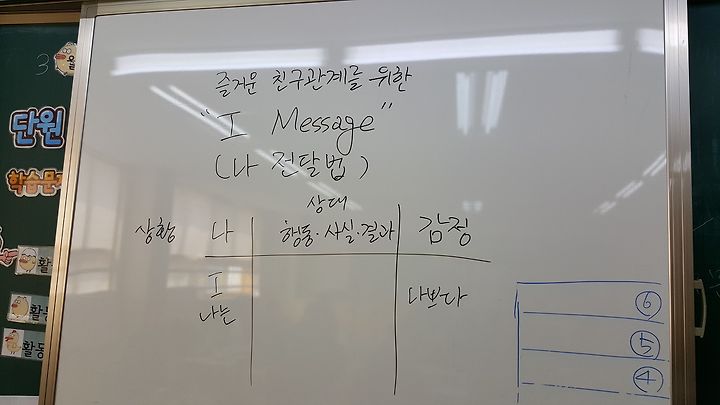 3
월
단원
학습문제
활동
활동
활동
즐거운 친구관계를 위한
"I Message"
(나 전달법)
상대
상황 나 행동·사실·결과 감정
I
나는 나쁘다
⑥
⑤
④